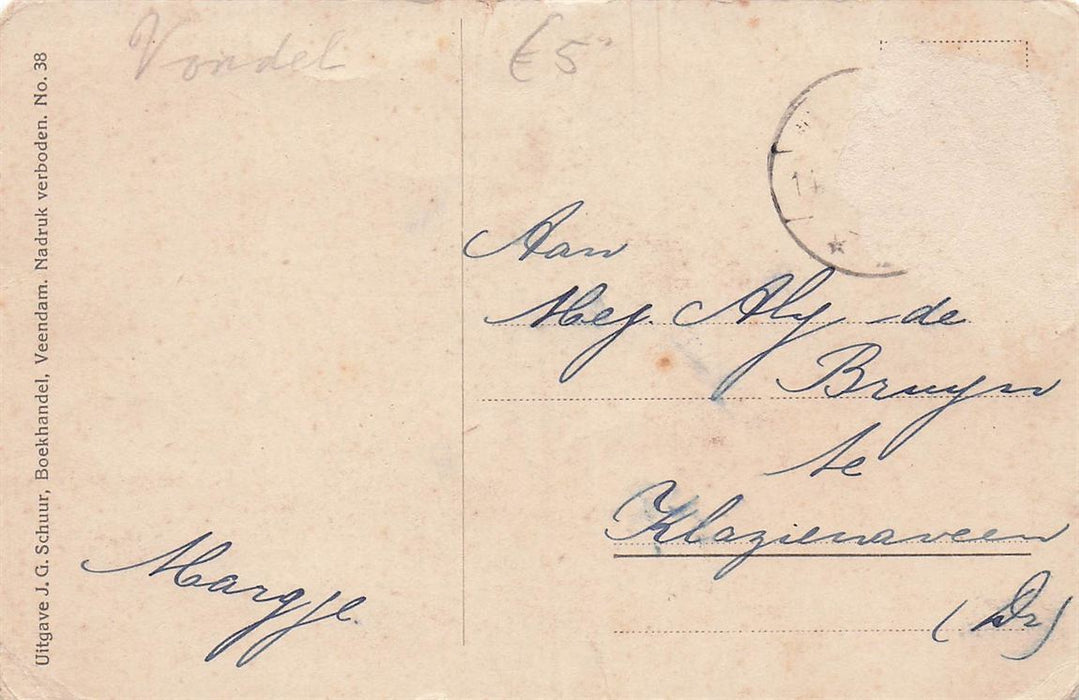 Vondel
€5
Uitgave J. G. Schuur, Boekhandel, Veendam. Nadruk verboden. No. 38
Margje.
Aan
Mej. Aly de
Bruyn
te
Klazienaveen
(Dr)